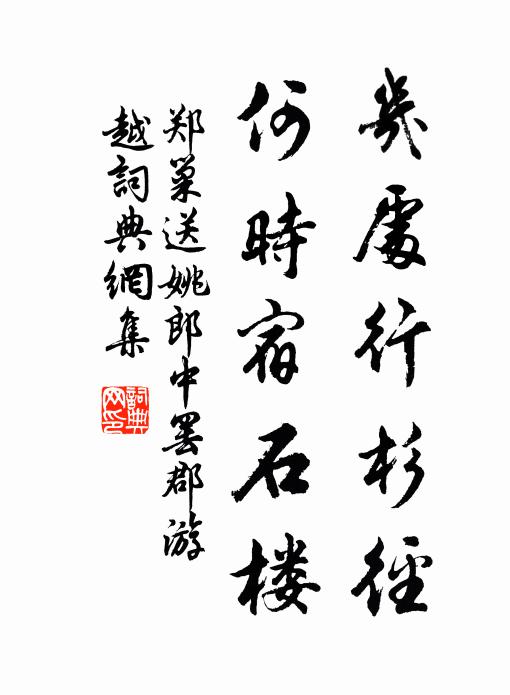 幾處行杉徑
何時宿石楼
郑巢送姚郎中罢郡游
越詞典網集
詞典网印